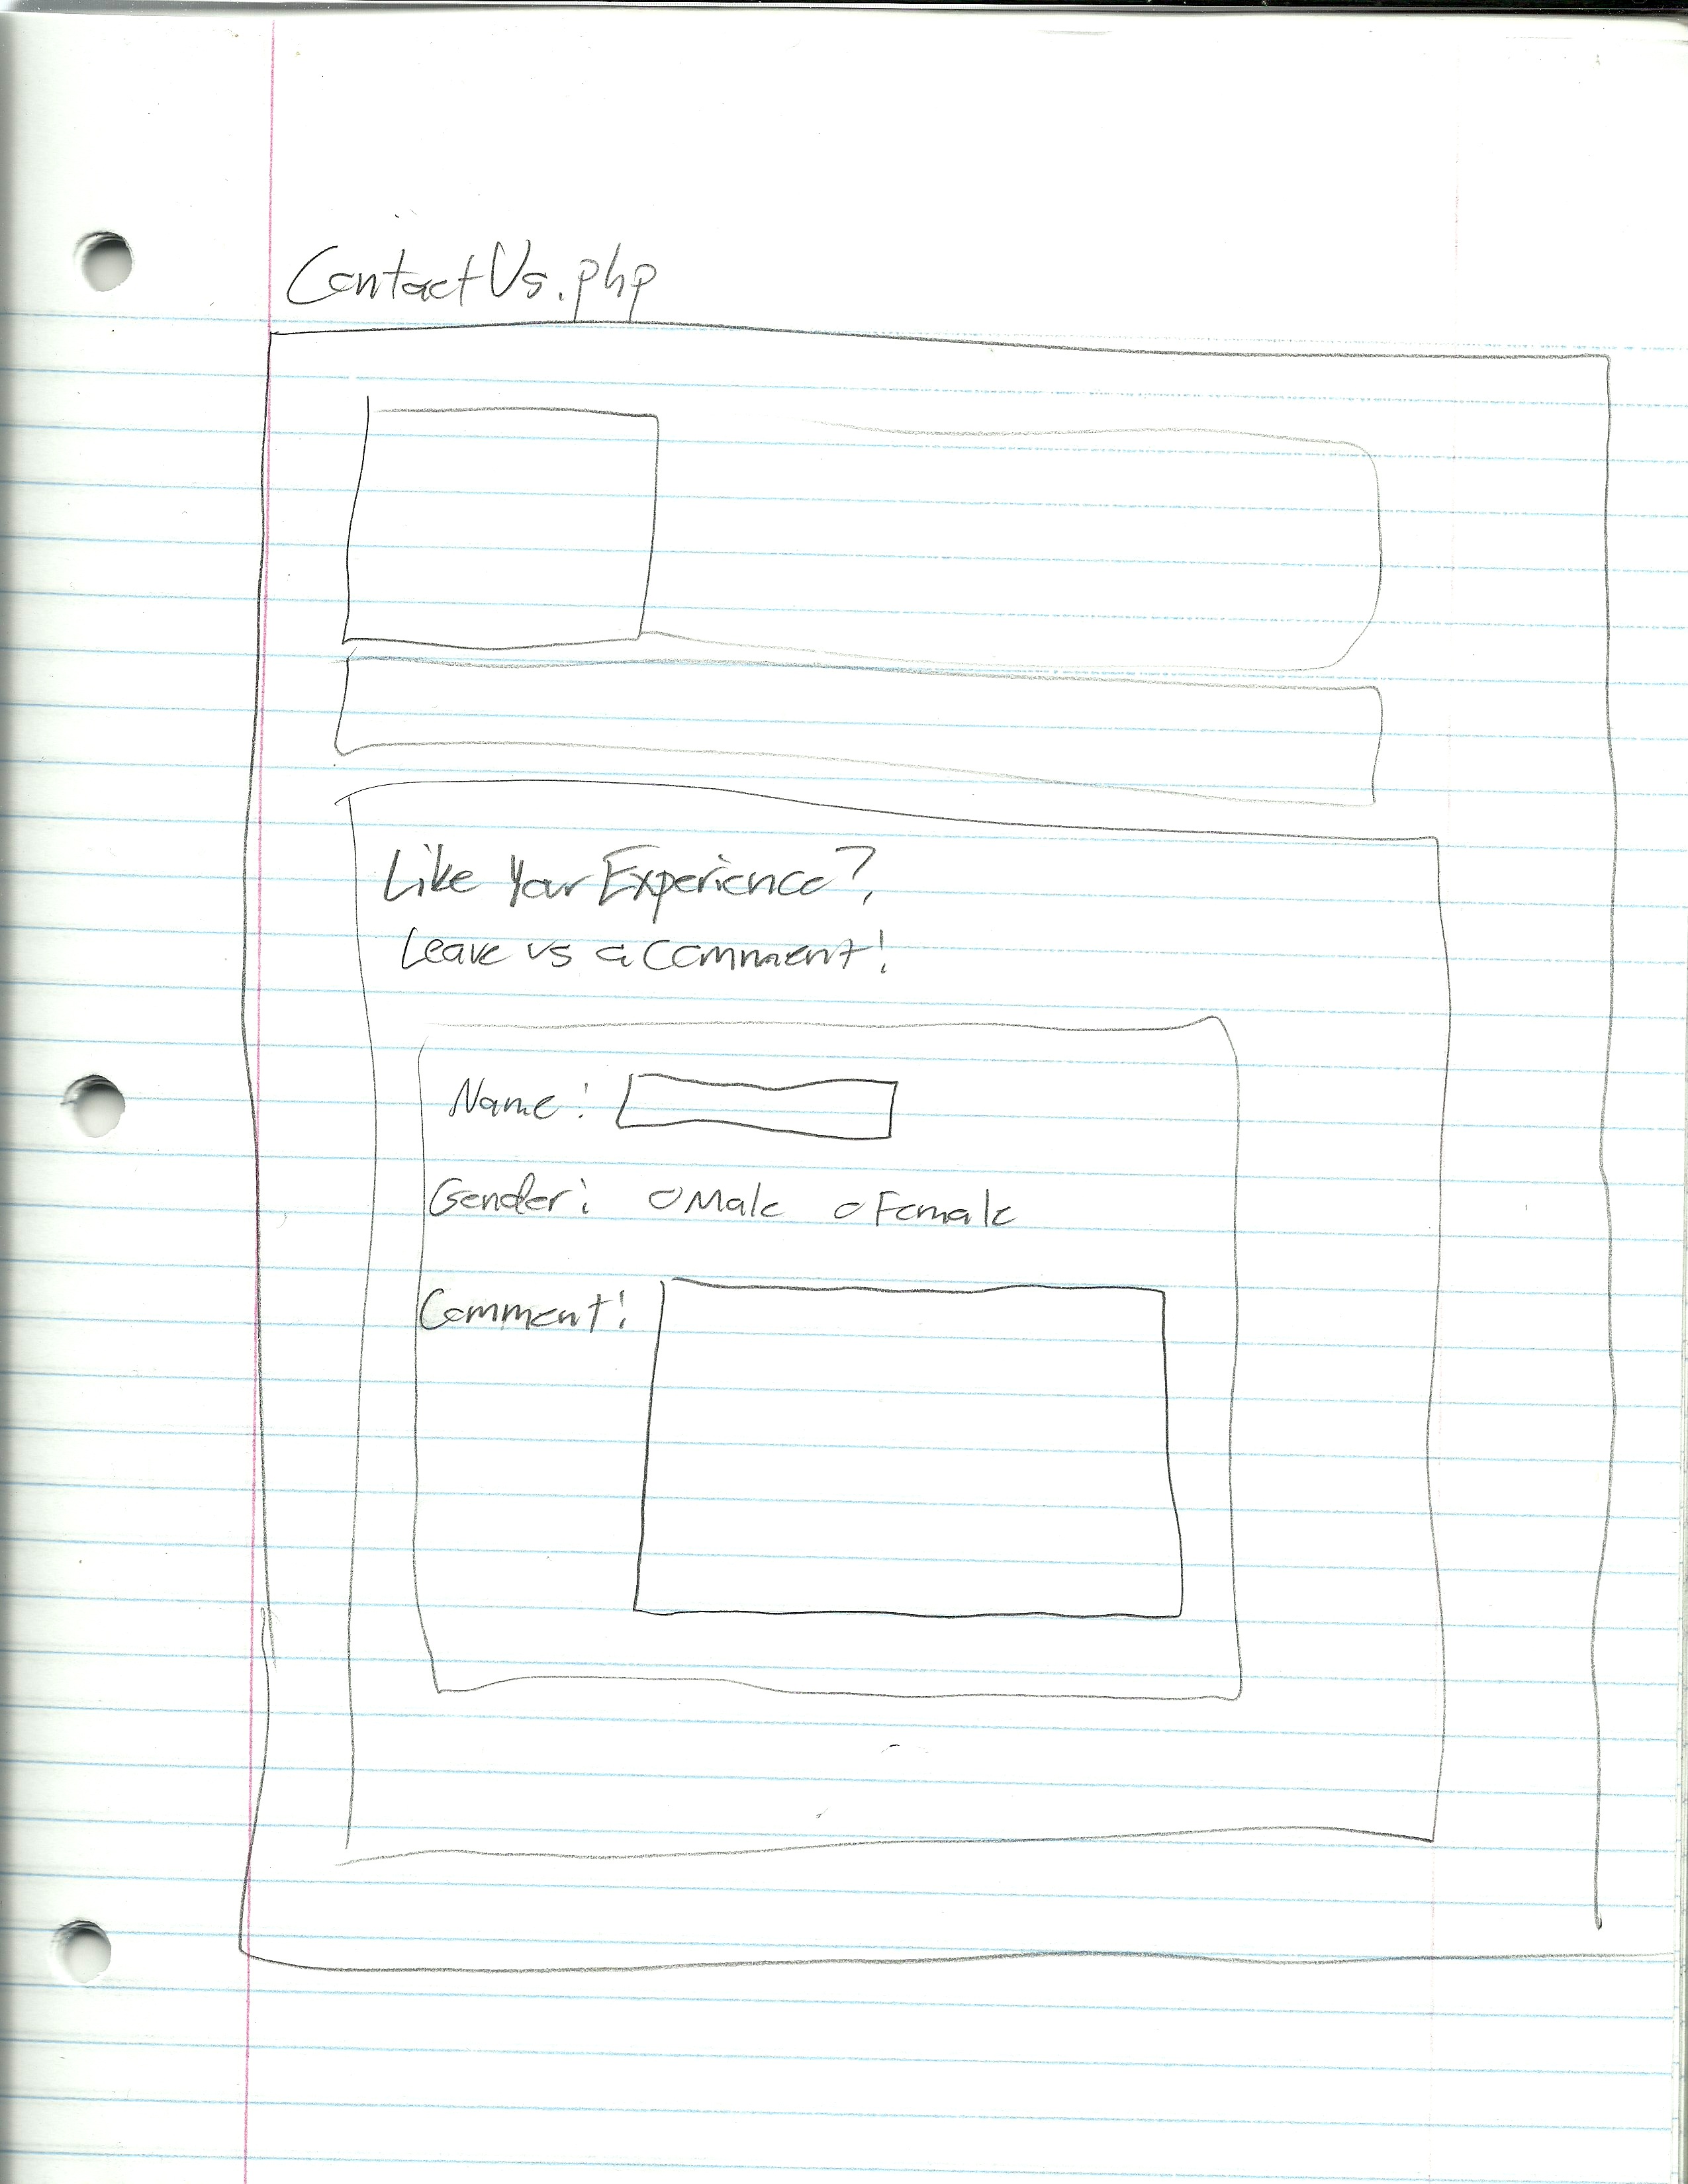 ContactUs.php
Like Your Experience?
Leave us a comment!
Name:
Gender: Male Female
Comment: